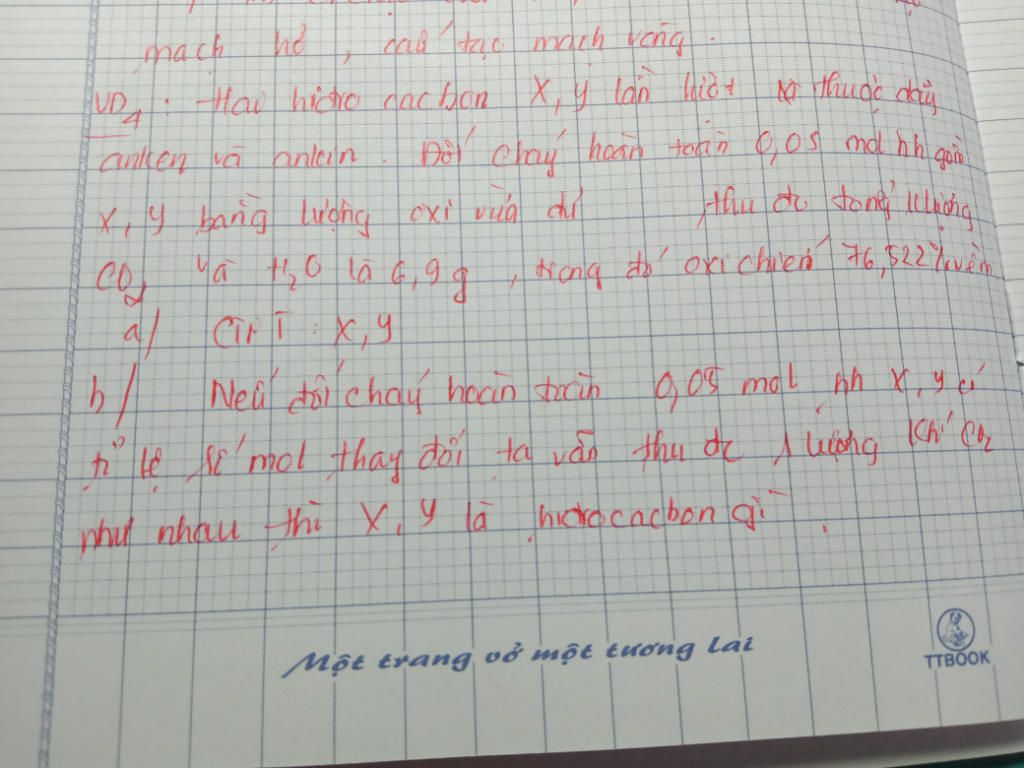 mạch hở, cấu tạo mạch vòng.
VD4: Hai hiđrocacbon X, Y lần lượt thuộc dãy
anken và ankin. Đốt cháy hoàn toàn 0,05 mol hh gồm
X, Y bằng lượng oxi vừa đủ, thu đc tổng lượng
CO2 và H2O là 6,9g, trong đó oxi chiếm 76,522%
a/ CTPT: X, Y
b/ Nếu đốt cháy hoàn toàn 0,05 mol hh X, Y có
tỉ lệ số mol thay đổi ta vẫn thu đc 1 lượng khí CO2
như nhau thì X, Y là hiđrocacbon gì.
Một trang vở một tương lai
TTBOOK